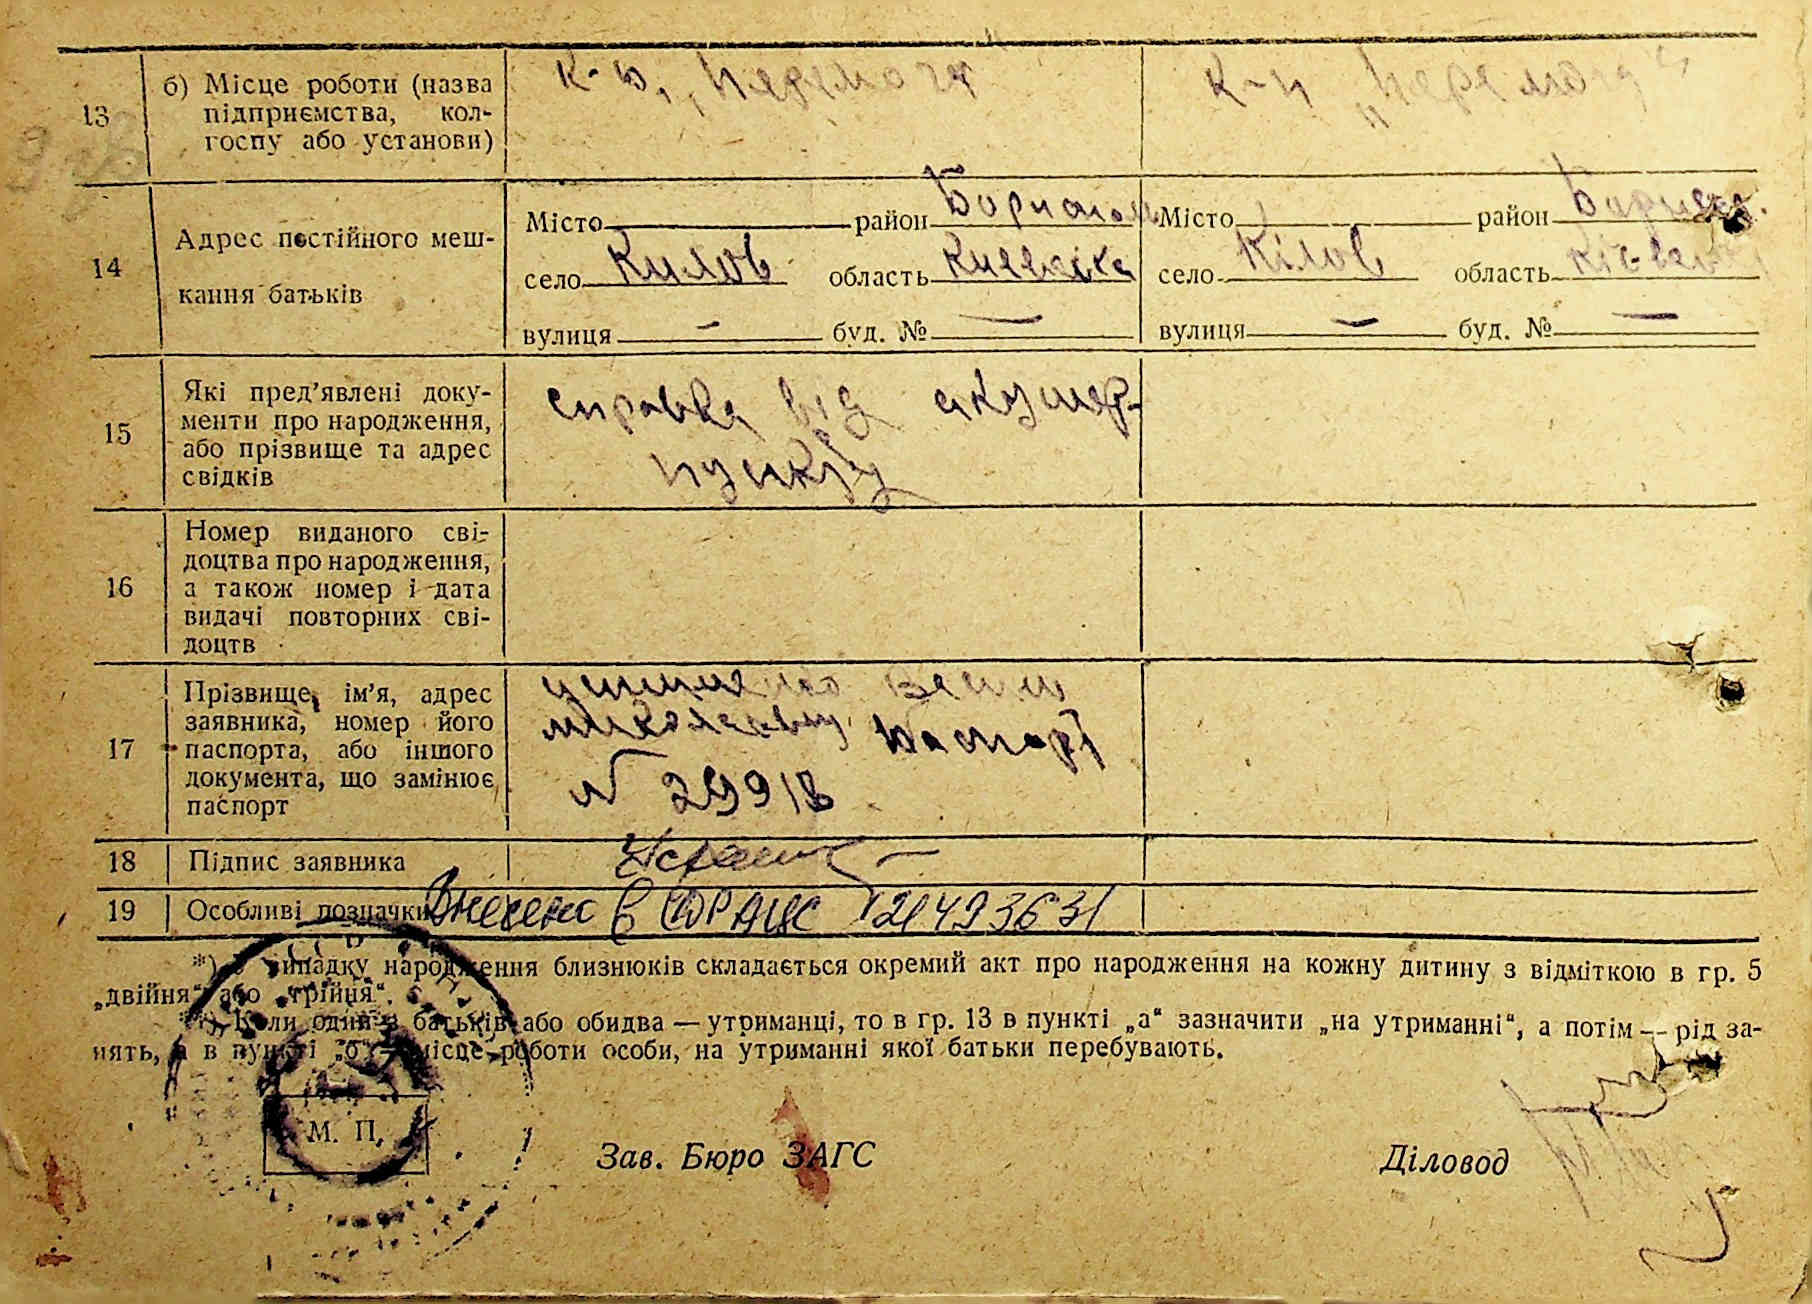 13 б) Місце роботи (назва
підприємства, кол-
госпу або установи)
к-п „Перемога“ к-п „Перемога“
14 Адрес постійного меш-
кання батьків
Місто район Бориспол Місто район
село Килов область Киевска село Кілов область
вулиця – буд. № — вулиця – буд. № —
15 Які пред’явлені доку-
менти про народження,
або прізвище та адрес
свідків
справка від акушер-
пункту
16 Номер виданого сві-
доцтва про народження,
а також номер і дата
видачі повторних сві-
доцтв
17 Прізвище, ім’я, адрес
заявника, номер його
паспорта, або іншого
документа, що замінює
паспорт
Паспорт
N 29918
18 Підпис заявника
19 Особливі позначки Внесено в ЄДРАЦС
*) У випадку народження близнюків складається окремий акт про народження на кожну дитину з відміткою в гр. 5
„двійня“ або „трійня“.
**) Коли один з батьків або обидва — утриманці, то в гр. 13 в пункті „а“ зазначити „на утриманні“, а потім — рід за-
нять, а в пункті „б“ — місце роботи особи, на утриманні якої батьки перебувають.
М. П.
Зав. Бюро ЗАГС Діловод